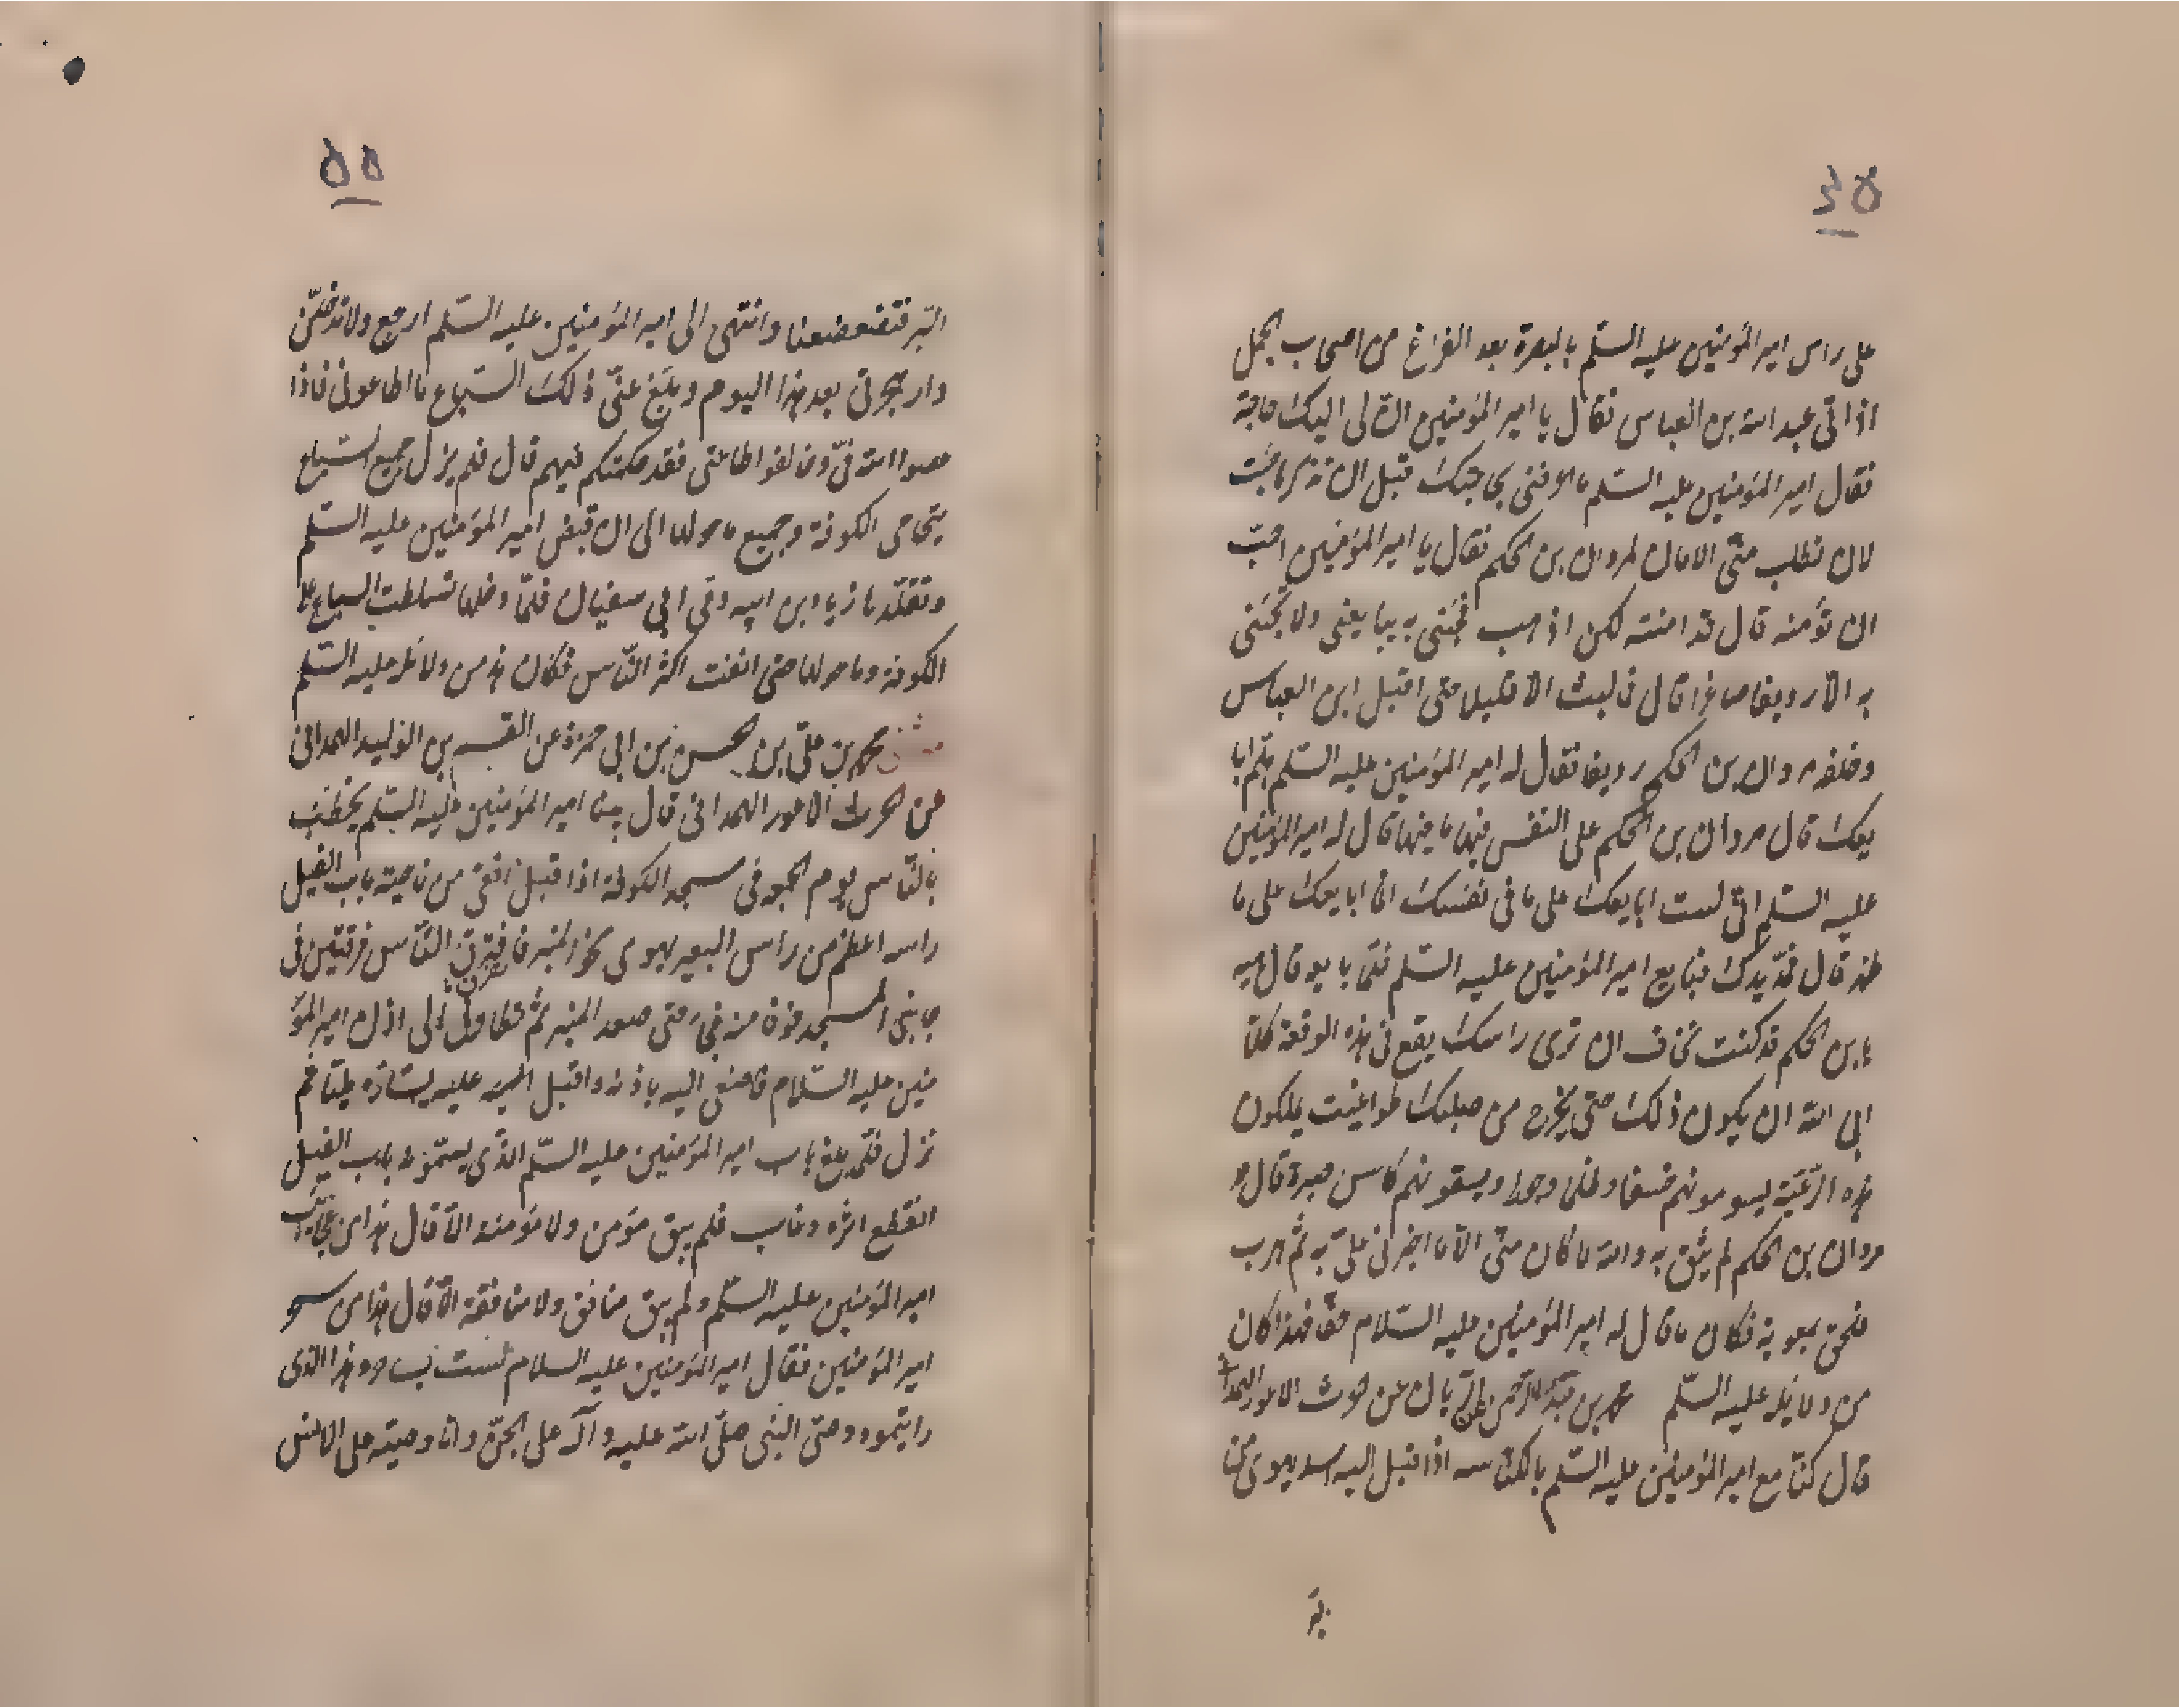 ٥٤
على راس امير المؤمنين عليه السلم بالبصرة بعد الفراغ من اصحاب الجمل
اذ اتى عبد الله بن العباس فقال يا امير المؤمنين ان لى اليك حاجة
فقال امير المؤمنين عليه السلم ما اعرفنى بحاجتك قبل ان تذكرها جئت
لان تطلب منى الامان لمروان بن الحكم فقال يا امير المؤمنين احب
ان تؤمنه قال قد امنته لكن اذهب فجئنى به يبايعنى ولا يجئنى
به الا رديفا صاغرا قال فما لبث الا قليلا حتى اقبل ابن العباس
وخلفه مروان بن الحكم رديفا فقال له امير المؤمنين عليه السلم هلم ابا
يعك قال مروان بن الحكم على النفس فيها ما فيها قال له امير المؤمنين
عليه السلم انى لست ابايعك على ما فى نفسك انما ابايعك على ما
ظهر قال فمد يدك فبايع امير المؤمنين عليه السلم فلما بايع قال هيه
يابن الحكم قد كنت تخاف ان ترى راسك يقع فى هذه الوقعة كلا
ابى الله ان يكون ذلك حتى يخرج من صلبك طواغيت يملكون
هذه الرعية يسومونهم خسفا وظلما وجورا ويسقونهم كاسن صبرة قال
مروان بن الحكم لم يثق به والله ما كان منى الا ما اخبرنى على به ثم هرب
فلحق بمعوية فكان ما قال له امير المؤمنين عليه السلام حقا فهذا كان
من دلايله عليه السلم محمد بن عن حرث الاعور الهمدانى
قال كنا مع امير المؤمنين عليه السلم بالكناسه اذ اقبل اليه اسد يهوى من
البر
٥٥
البر فتضعضعنا وانتهى الى امير المؤمنين عليه السلم ارجع ولا تدخلن
دار هجرتى بعد هذا اليوم وبلغ عنى ذلك السباع ما اطاعونى فاذا
عصوا الله فى وخالفوا طاعتى فقد حكمتكم فيهم قال فلم يزل جميع السباع
يتحامى الكوفة وجميع ما حولها الى ان قبض امير المؤمنين عليه السلم
وتقلدها زياد بن ابيه دعى ابى سفيان فلما دخلها تسلطت السباع على
الكوفة وما حولها حتى افنت اكثر الناس فكان هذه من دلائله عليه السلم
محمد بن على بن حسن بن ابى حمزة عن القسم بن الوليد الهمدانى
عن حرث الاعور الهمدانى قال بينا امير المؤمنين عليه السلم يخطب
بالناس يوم الجمعه فى مسجد الكوفة اذ اقبل افعى من ناحية باب الفيل
راسه اعظم من راس البعير يهوى نحو المنبر فافترق الناس فرقتين فى
جانبى المسجد خوفا منه فجاء حتى صعد المنبر ثم تطاول الى اذن امير المؤ
منين عليه السلام فاصغى اليه باذنه واقبل اليه عليه يساره مليا ثم
نزل فلما بلغ باب امير المؤمنين عليه السلم الذى يسمونه باب الفيل
انقطع اثره وغاب فلم يبق مؤمن ولا مؤمنة الا قال هذا من عجايب
امير المؤمنين عليه السلم ولم يبق منافق ولا منافقة الا قال هذا من سحر
امير المؤمنين فقال امير المؤمنين عليه السلام لست بساحر وهذا الذى
رايتموه وصى النبى صلى الله عليه وآله على الجن وانا وصيه على الانس